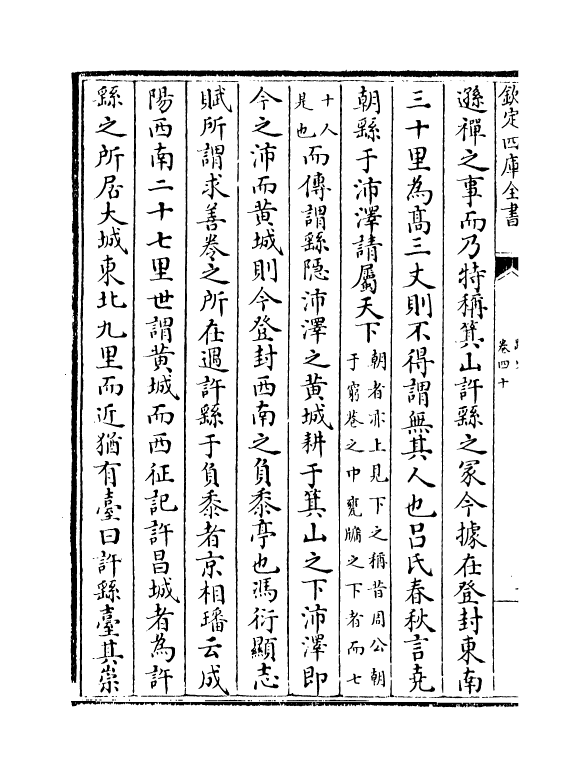 欽定四庫全書
卷四十
遜禪之事而乃特稱箕山許繇之冢今據在登封東南
三十里為髙三丈則不得謂無其人也吕氏春秋言堯
朝繇于沛澤請屬天下
朝者亦上見下之稱昔周公朝
于窮巷之中甕牖之下者而七
十人
見也
而傳謂繇隠沛澤之黄城耕于箕山之下沛澤即
今之沛而黄城則今登封西南之負黍亭也馮衍顯志
賦所謂求善卷之所在遇許繇于負黍者京相璠云成
陽西南二十七里世謂黄城而西征記許昌城者為許
繇之所居大城東北九里而近猶有臺曰許繇臺其崇